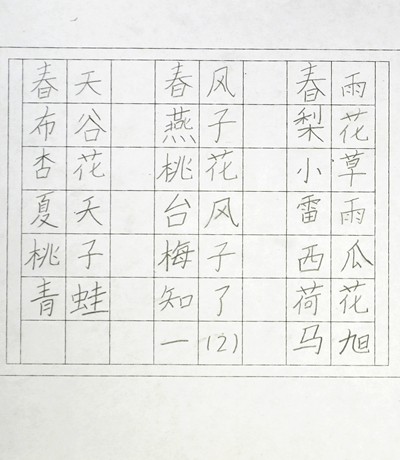 春天 春风 春雨
布谷 燕子 梨花
杏花 桃花 小草
夏天 台风 雷雨
桃子 梅子 西瓜
青蛙 知了 荷花
一(2) 马旭